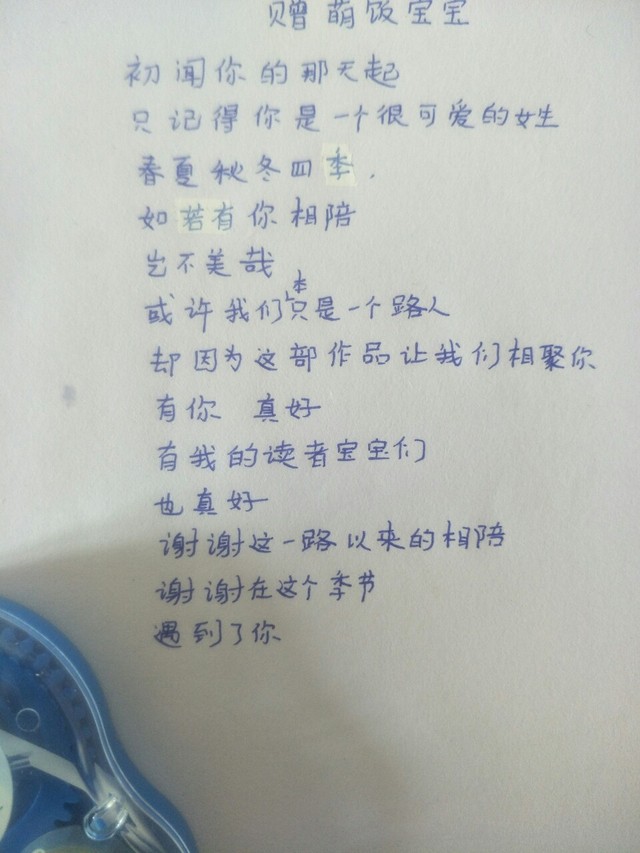 赠萌饭宝宝
初闻你的那天起
只记得你是一个很可爱的女生
春夏秋冬四季.
如若有你相陪
岂不美哉
或许我们本只是一个路人
却因为这部作品让我们相聚你
有你 真好
有我的读者宝宝们
也真好
谢谢这一路以来的相陪
谢谢在这个季节
遇到了你